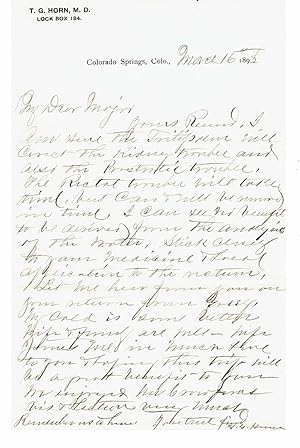 T. G. HORN, M. D.
LOCK BOX 184.
Colorado Springs, Colo., March 16th 1895
My Dear Major
Yours Recvd. I
am sure the Tritipalm will
Correct the Kidney trouble and
also the Prostatic trouble.
The Rectal trouble will take
time, but Can & will be removed
in time. I Can see no benefit
to be derived from the analysis
of the water. Stick closely
to your medicine & local
application to the rectum.
Let me hear from you on
your return from
My Cold is Some better
Wife & family are well — wife
joins me in much love
to you & hoping this trip will
be a great benefit to you
We enjoyed Mr
visit very much
Remember us to
Your true friend
T. G. Horn